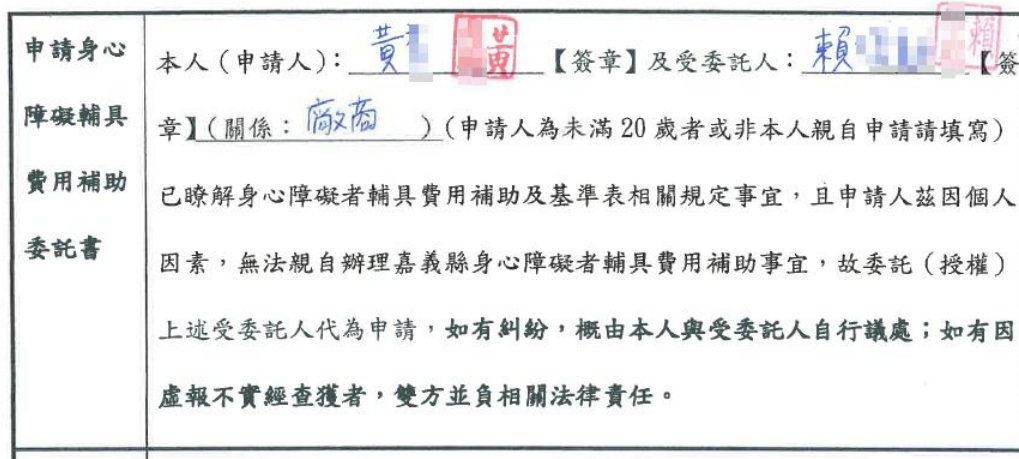 申請身心
障礙輔具
費用補助
委託書
本人(申請人):黃 黃【簽章】及受委託人:賴 賴【簽
章】(關係:廠商)(申請人為未滿20歲者或非本人親自申請請填寫)
已瞭解身心障礙者輔具費用補助及基準表相關規定事宜,且申請人茲因個人
因素,無法親自辦理嘉義縣身心障礙者輔具費用補助事宜,故委託(授權)
上述受委託人代為申請,如有糾紛,概由本人與受委託人自行議處;如有因
虛報不實經查獲者,雙方並負相關法律責任。